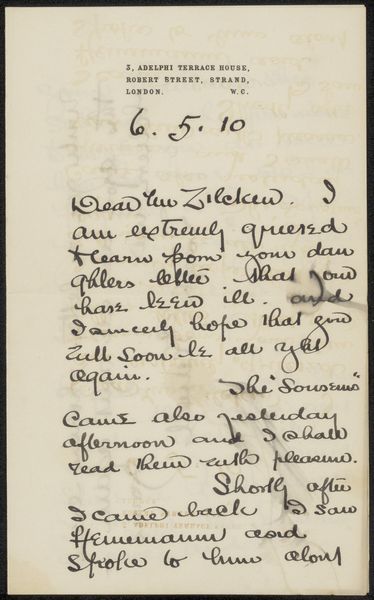 3, ADELPHI TERRACE HOUSE,
ROBERT STREET, STRAND,
LONDON. W.C.
6. 5. 10
Dear Mr Zilcken. I
am extremly grieved
to learn from your dau
ghters letter that you
have been ill. and
I sincerly hope that you
will soon be all right
again.
The "Souvenirs"
Came also yesterday
afternoon and I shall
read them with pleasure.
Shortly after
I came back I saw
Heinemann and
Spoke to him about